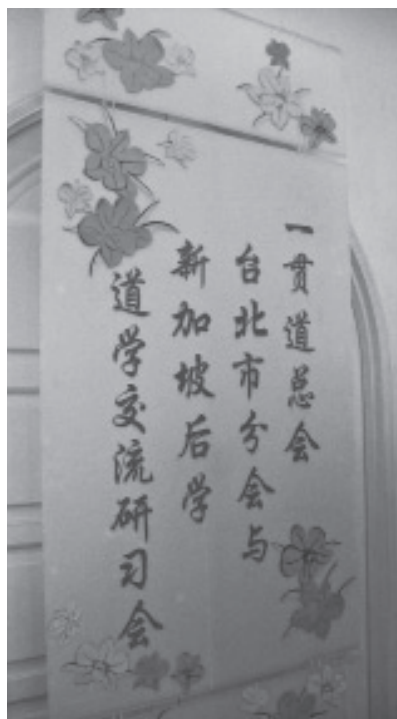 一贯道总会
台北市分会与
新加坡后学
道学交流研习会